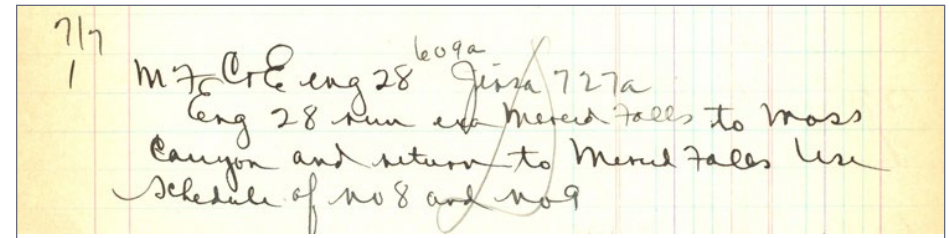 7/7
609a
1 M F C&E eng 28 727a
Eng 28 run exa Merced Falls to Moss
Canyon and return to Merced Falls Use
Schedule of No 8 and No 9